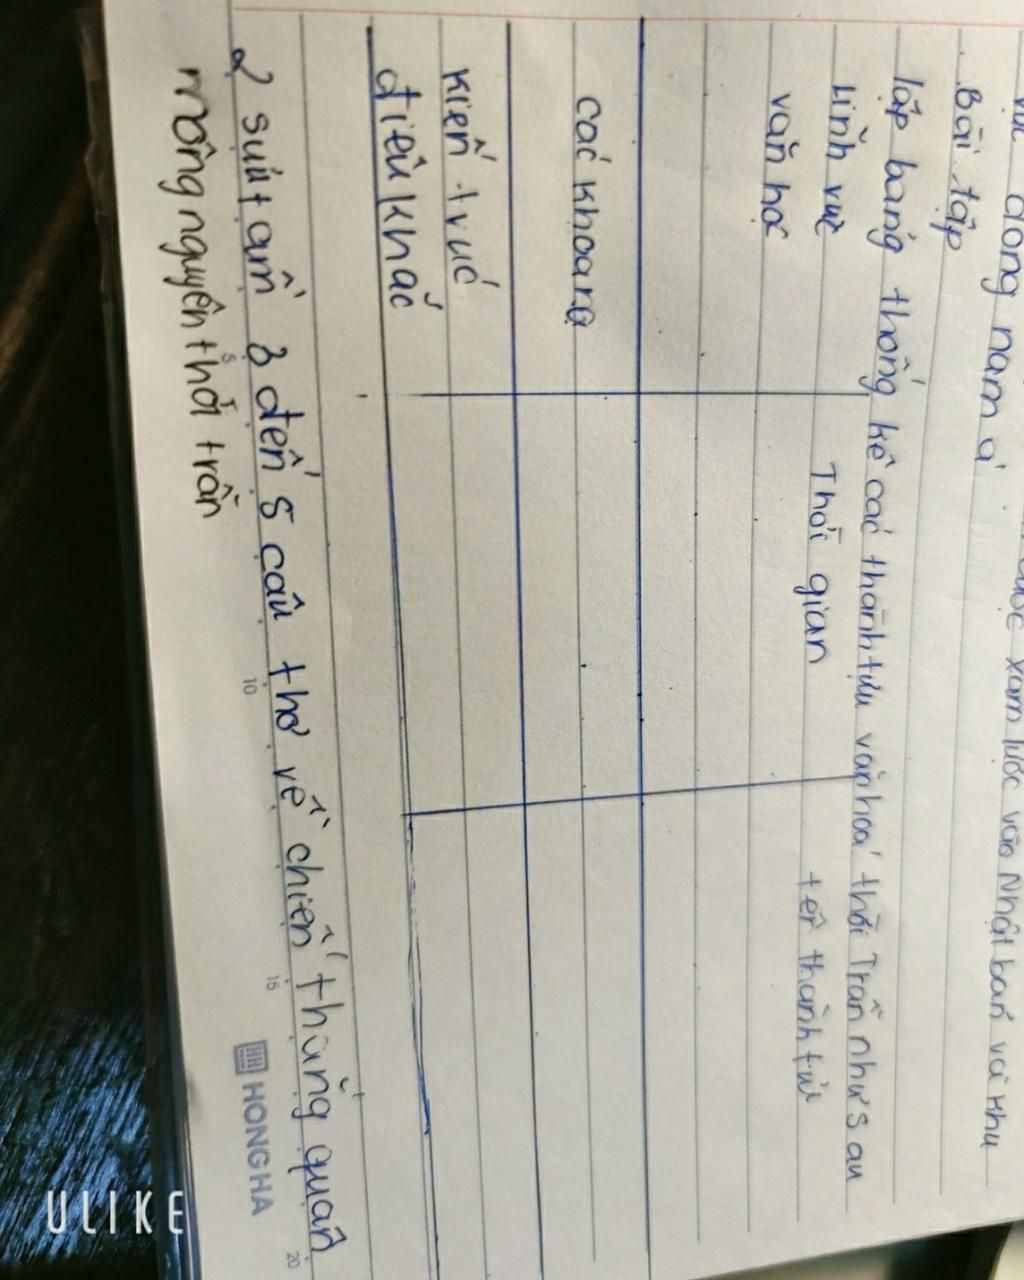 đông nam á xâm lược vào Nhật bản và khu
Bài tập
lập bảng thống kê các thành tựu văn hoá thời Trần như sau
Lĩnh vực Thời gian tên thành tựu
văn học
các khoa
kiến trúc
điêu khắc
2 sưu tầm 3 đến 5 câu thơ về chiến thắng quân
mông nguyên thời trần
5
10
15
20
HH HONG HA
ULIKE